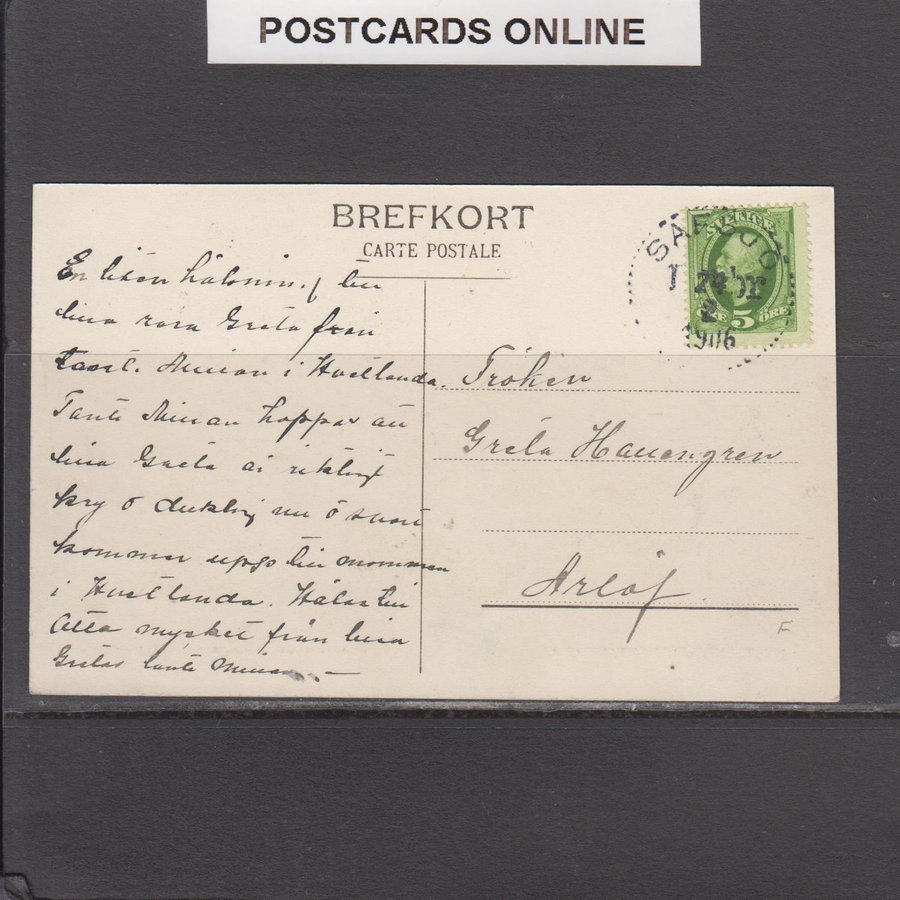 POSTCARDS ONLINE
BREFKORT
CARTE POSTALE
En liten hälsning till
lilla rara Greta från
tant Minan i Hvetlanda.
Tant Minan hoppas att
lilla Greta är riktigt
kry o duktig nu o snart
kommer upp till mormor
i Hvetlanda. Hälsa till
Atta mycket från lilla
Gretas tant Minan
SVERIGE
5 ÖRE
1906
Fröken
Greta Hallengren
Arlöf.
F